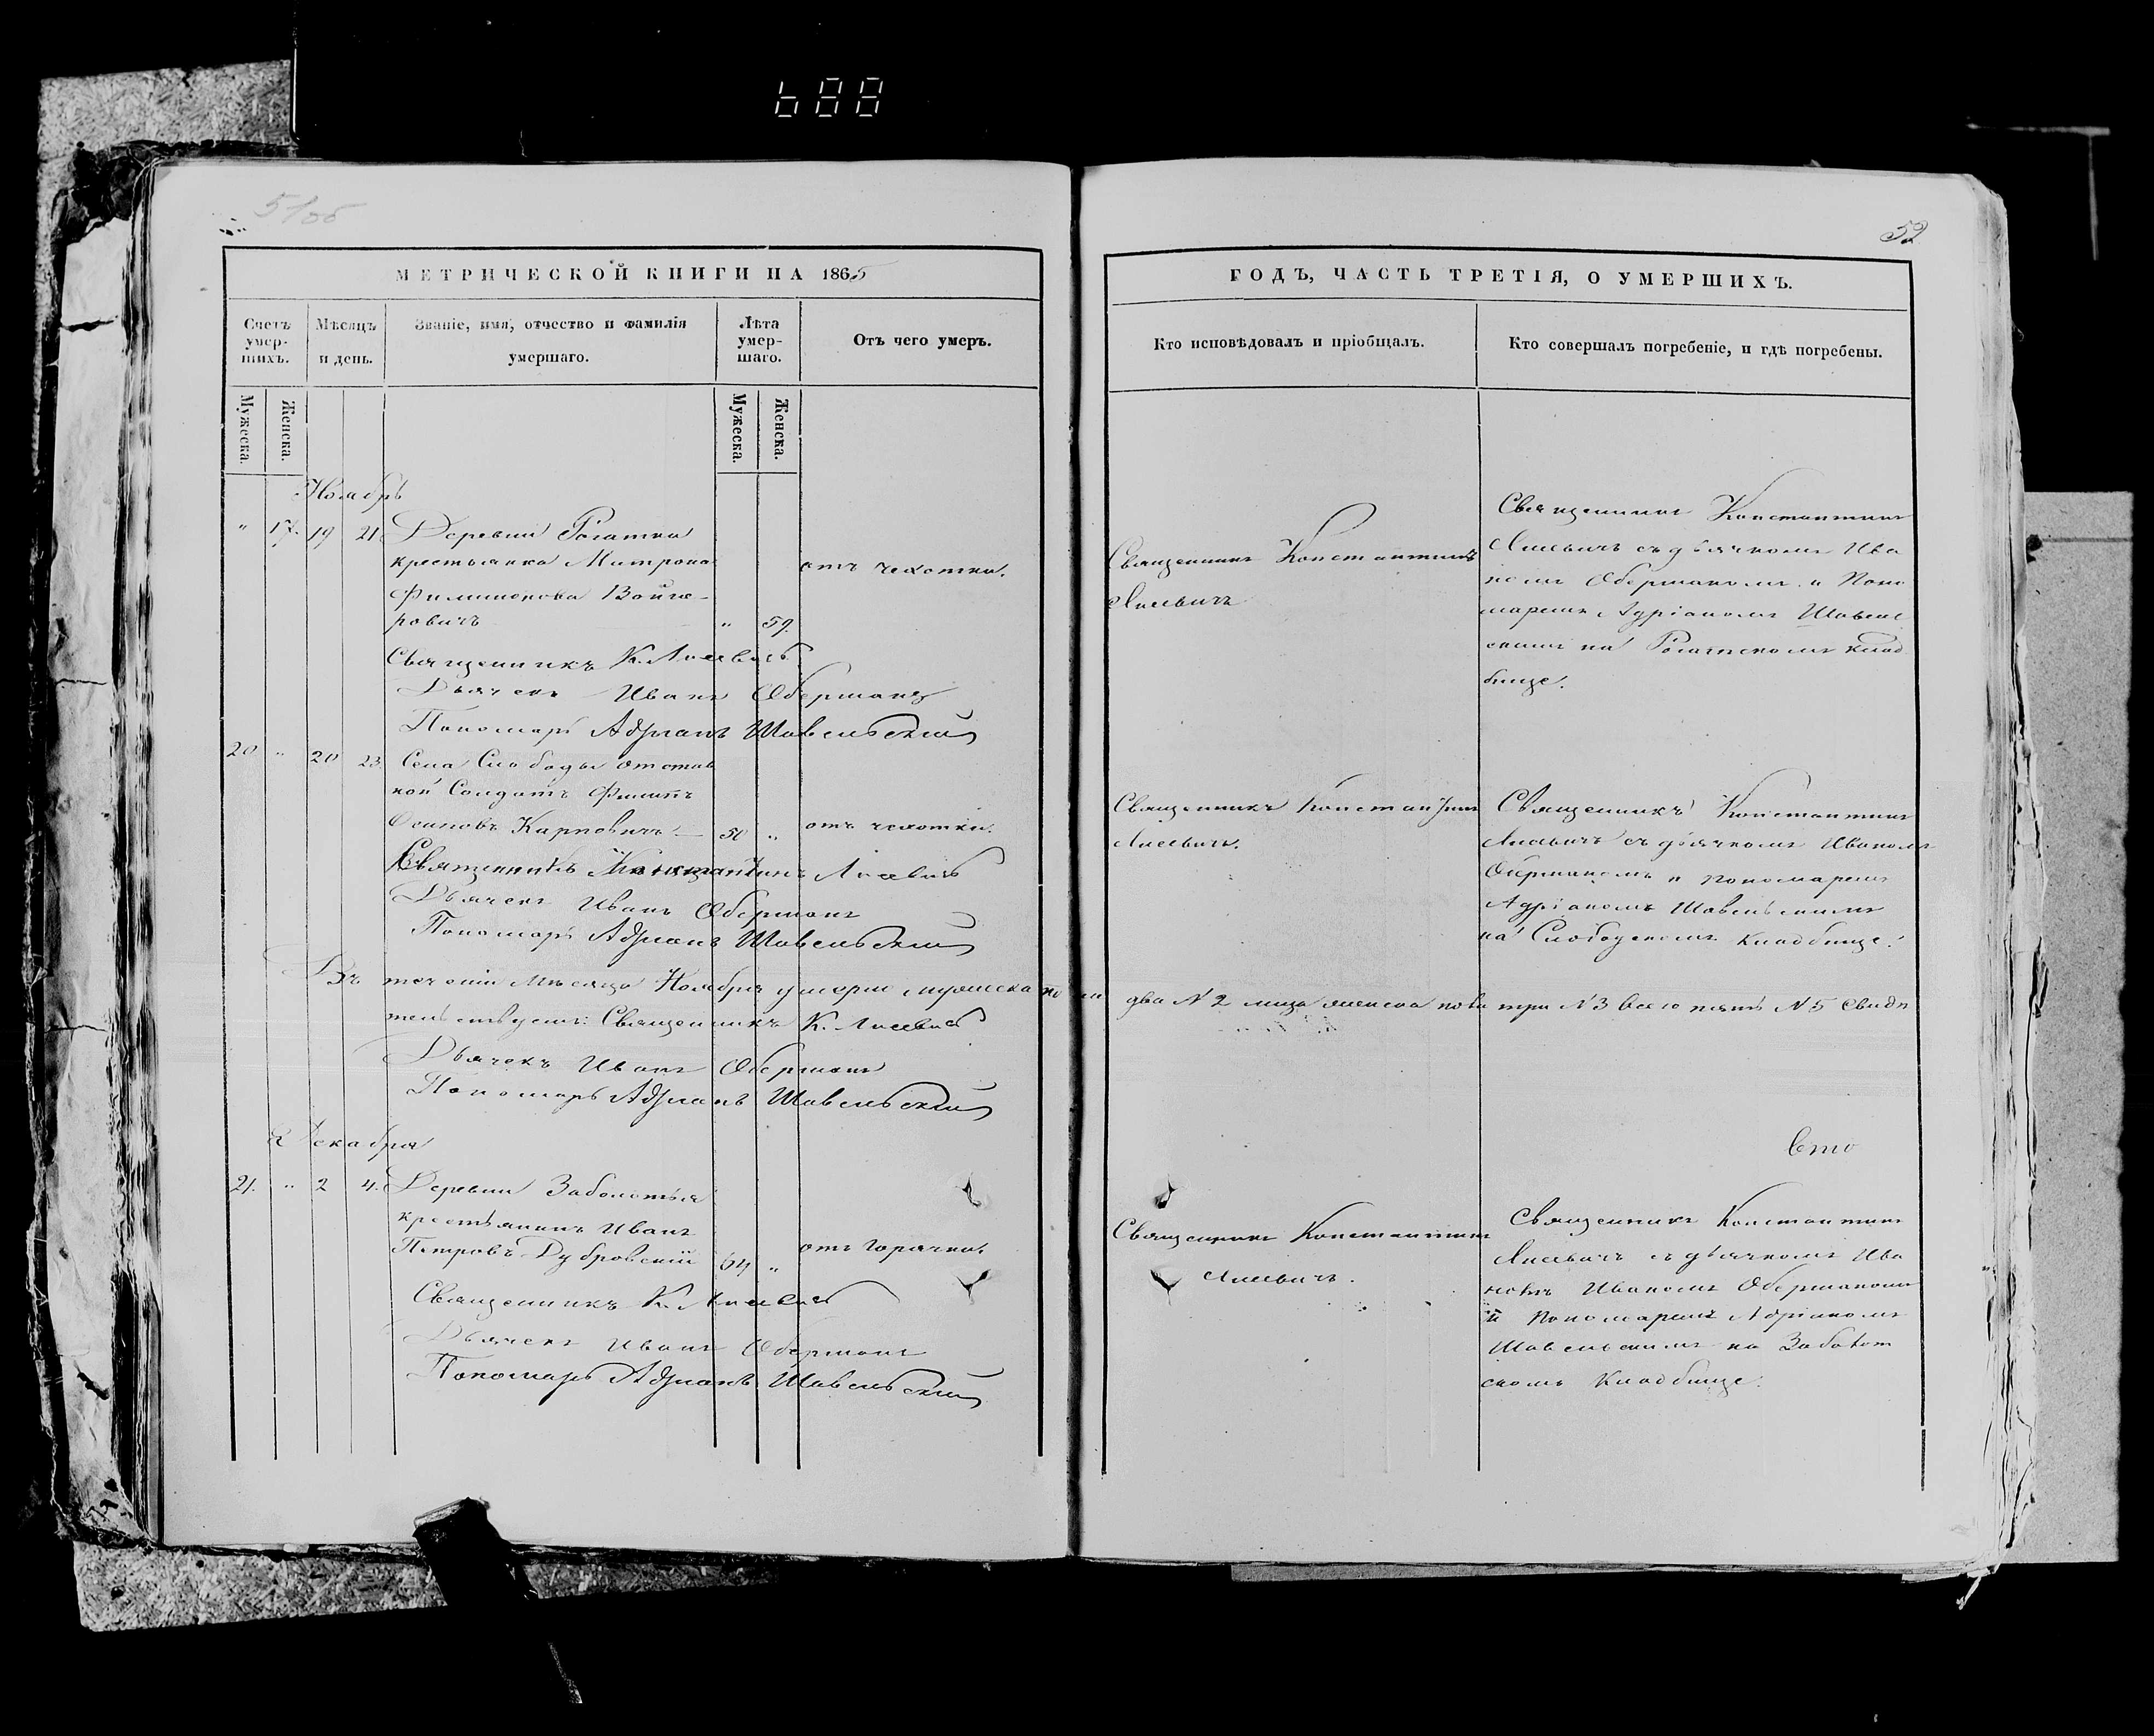 688
51об
52
МЕТРИЧЕСКОЙ КНИГИ НА 1865
ГОДЪ, ЧАСТЬ ТРЕТІЯ, О УМЕРШИХЪ.
Счетъ умер-шихъ.
Мѣсяцъ и день.
Званіе, имя, отчество и фамилія
умершаго.
Лѣта умер-шаго.
Отъ чего умеръ.
Кто исповѣдовалъ и пріобщалъ.
Кто совершалъ погребеніе, и гдѣ погребены.
Мужеска.
Женска.
Мужеска.
Женска.
Ноябрь
" 17. 19 21. Деревни Рогатки
крестьянка Матрона
Филимонова Войте-
ровичъ " 59.
отъ чахотки.
Священникъ К. Лисевичъ
Дьячекъ Иванъ Оберманъ
Пономарь Адріанъ Шавельскій
Священникъ Константинъ
Лисевичъ
Священникъ Константинъ
Лисевичъ съ дьячкомъ Ива
номъ Оберманомъ и Поно
маремъ Адріаномъ Шавель
скимъ на кладбище.
20 " 20 23. Села Слободы отстав
ной Солдатъ Филипъ
Осиповъ Карповичъ — 50 "
отъ чахотки.
Священникъ Константинъ Лисевичъ
Дьячекъ Иванъ Оберманъ
Пономарь Адріанъ Шавельскій
Священникъ Константинъ
Лисевичъ.
Священникъ Константинъ
Лисевичъ съ дьячкомъ Иваномъ
Оберманомъ и пономаремъ
Адріаномъ Шавельскимъ
на Слободскомъ кладбище.
Въ теченіи мѣсяца Ноября умерло мужеска пола два №2 лица женска пола три №3 всего пять №5 Свидѣ
тельствуемъ: Священникъ К. Лисевичъ
Дьячекъ Иванъ Оберманъ
Пономарь Адріанъ Шавельскій
Декабря
21. " 2 4. Деревни Заболотья
крестьянинъ Иванъ
Петровъ Дубровскій 64 "
отъ горячки.
Священникъ К. Лисевичъ
Дьячекъ Иванъ Оберманъ
Пономарь Адріанъ Шавельскій
Священникъ Константинъ
Лисевичъ.
Священникъ Константинъ
Лисевичъ съ дьячкомъ Ива
номъ Иваномъ Оберманомъ
и Пономаремъ Адріаномъ
Шавельскимъ на Заболот
скомъ Кладбище.